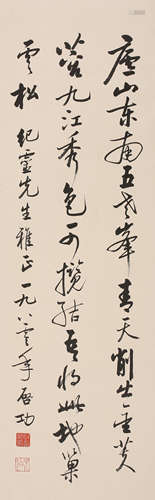 廬山东南五老峯青天削出金芙
蓉九江秀色可攬结吾将此地巢
雲松 纪靈先生雅正一九八零年启功